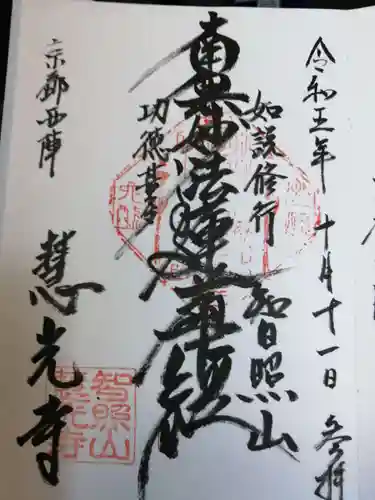 令和五年 十月十一日 参拝
如説修行 智日照山
南無妙法蓮華経
功徳甚多
京都西陣
慧光寺
智照山
慧光寺